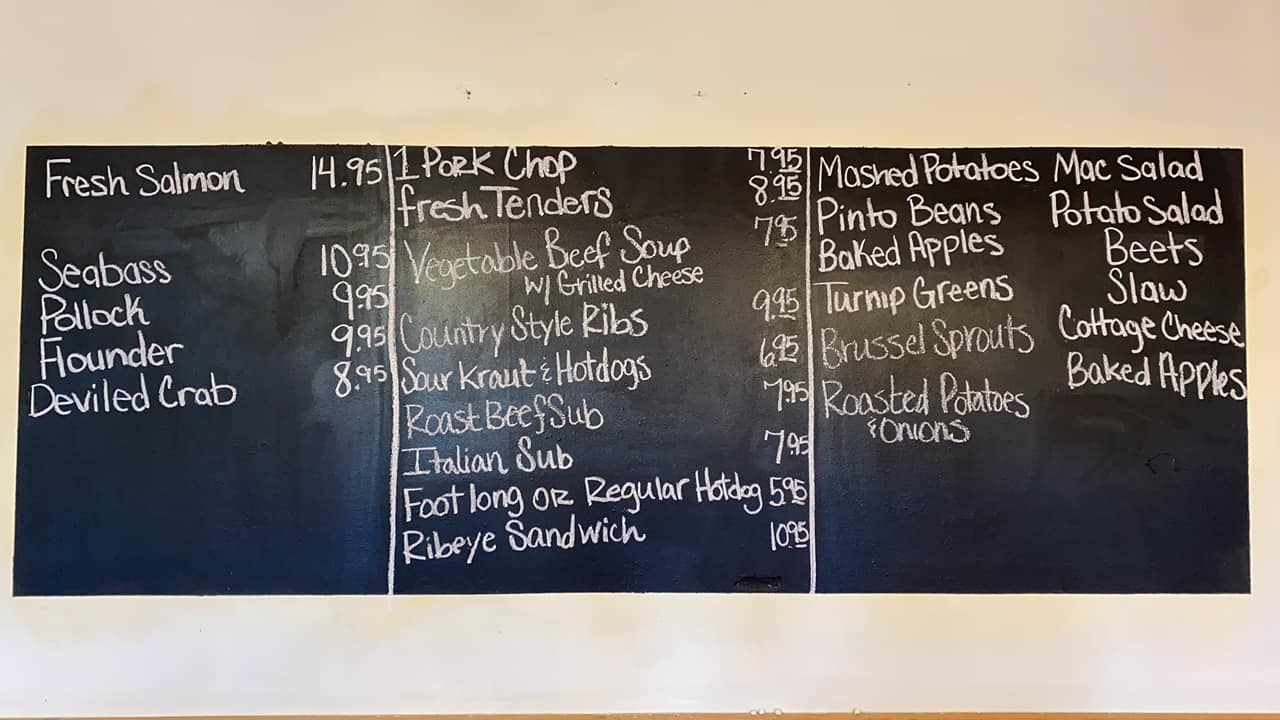 Fresh Salmon 14.95
Seabass 10.95
Pollock 9.95
Flounder 9.95
Deviled Crab 8.95
1 Pork Chop 7.95
fresh Tenders 8.95
Vegetable Beef Soup 7.95
w/ Grilled Cheese
Country Style Ribs 9.95
Sour Kraut & Hotdogs 6.95
Roast Beef Sub 7.95
Italian Sub 7.95
Foot long or Regular Hotdog 5.95
Ribeye Sandwich 10.95
Mashed Potatoes
Pinto Beans
Baked Apples
Turnip Greens
Brussel Sprouts
Roasted Potatoes
& Onions
Mac Salad
Potato Salad
Beets
Slaw
Cottage Cheese
Baked Apples